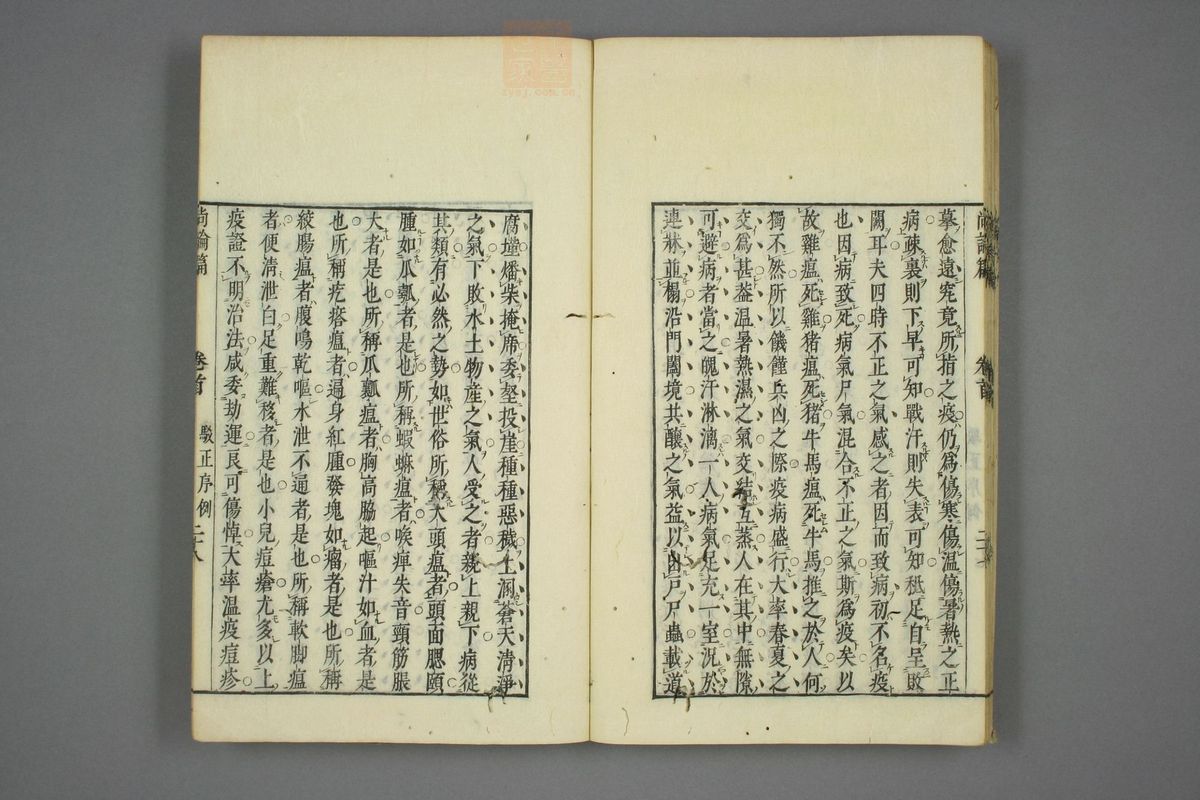 摹愈遠究竟所指之疫仍爲傷寒傷溫傷暑熱之正
病疎裏則下早可知戰汗則失表可知秪足自呈敗
闕耳夫四時不正之氣感之者因而致病初不名疫
也因病致死病氣尸氣混合不正之氣斯爲疫矣以
故雞瘟死雞猪瘟死猪牛馬瘟死牛馬推之於人何
獨不然所以饑饉兵凶之際疫病盛行大率春夏之
交爲甚葢溫暑熱濕之氣交結互蒸人在其中無隙
可避病者當之魄汗淋漓一人病氣足充一室況於
連牀並榻沿門闔境共釀之氣益以出戶尸蟲載道
尚論篇 卷首
腐墐燔柴掩席委壑投崖種種惡穢上溷蒼天淸淨
之氣下敗水土物産之氣人受之者親上親下病從
其類有必然之勢如世俗所稱大頭瘟者頭面腮頤
腫如瓜瓠者是也所稱蝦蟆瘟者喉痺失音頸筋脹
大者是也所稱瓜瓤瘟者胸高脇起嘔汁如血者是
也所稱疙瘩瘟者遍身紅腫發塊如瘤者是也所稱
絞腸瘟者腹鳴乾嘔水泄不通者是也所稱軟脚瘟
者便淸泄白足重難移者是也小兒痘瘡尤多以上
疫證不明治法咸委劫運良可傷悼大率溫疫痘疹
尚論篇 卷首 駁正序例 二十八
zysj.com.cn